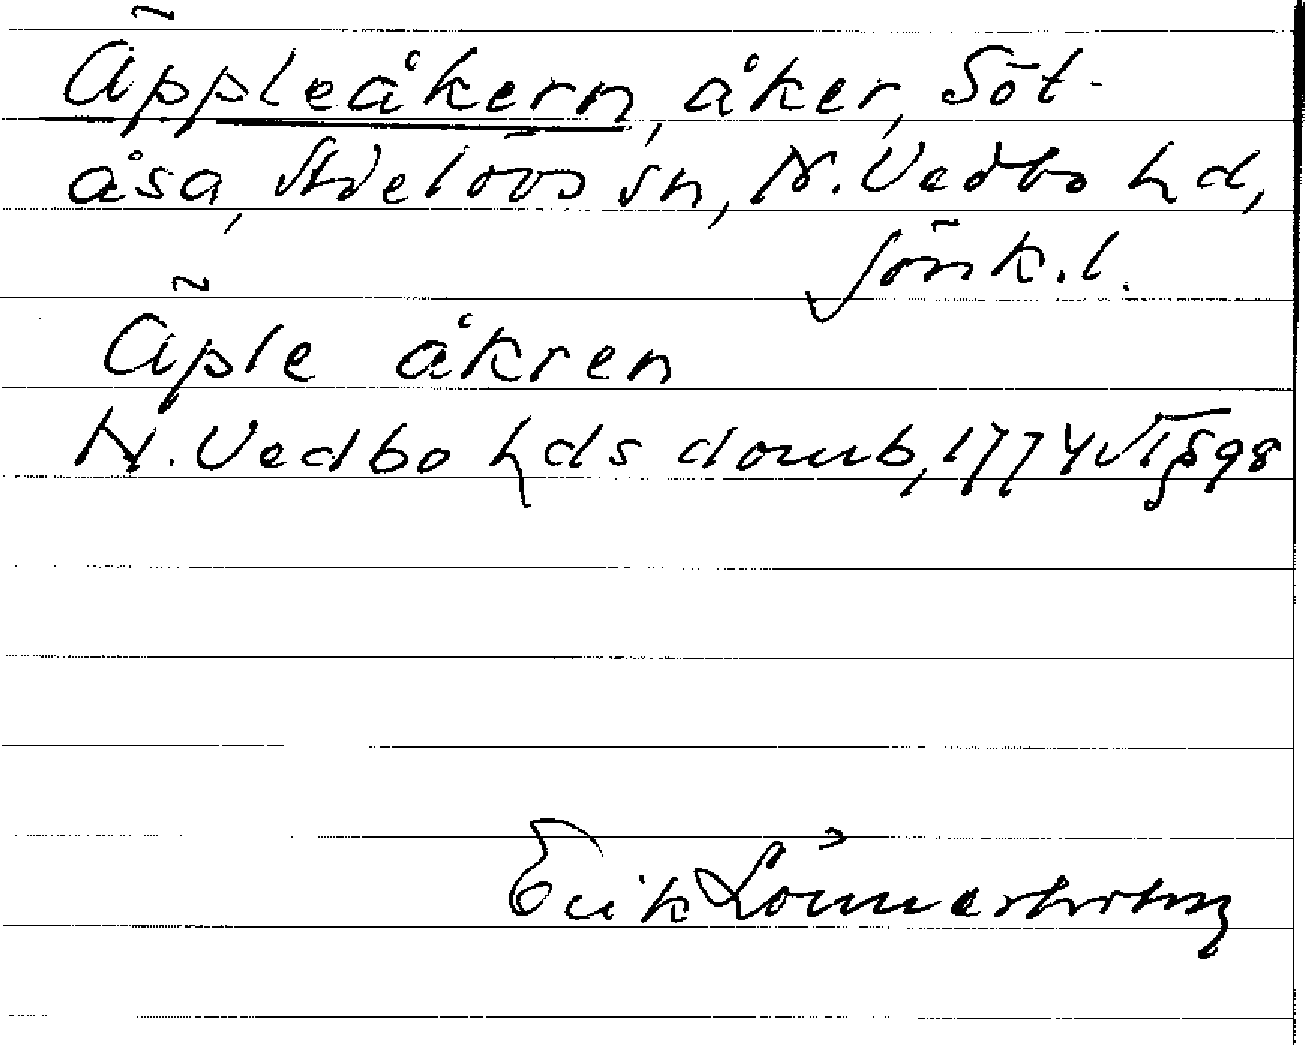 Äppleåkern, åker, Söt-
åsa, Adelövs sn, N. Vedbo hd,
Jönk.l.
Äple åkren
N. Vedbo hds domb, 1774 98
Erik Lönnerholm